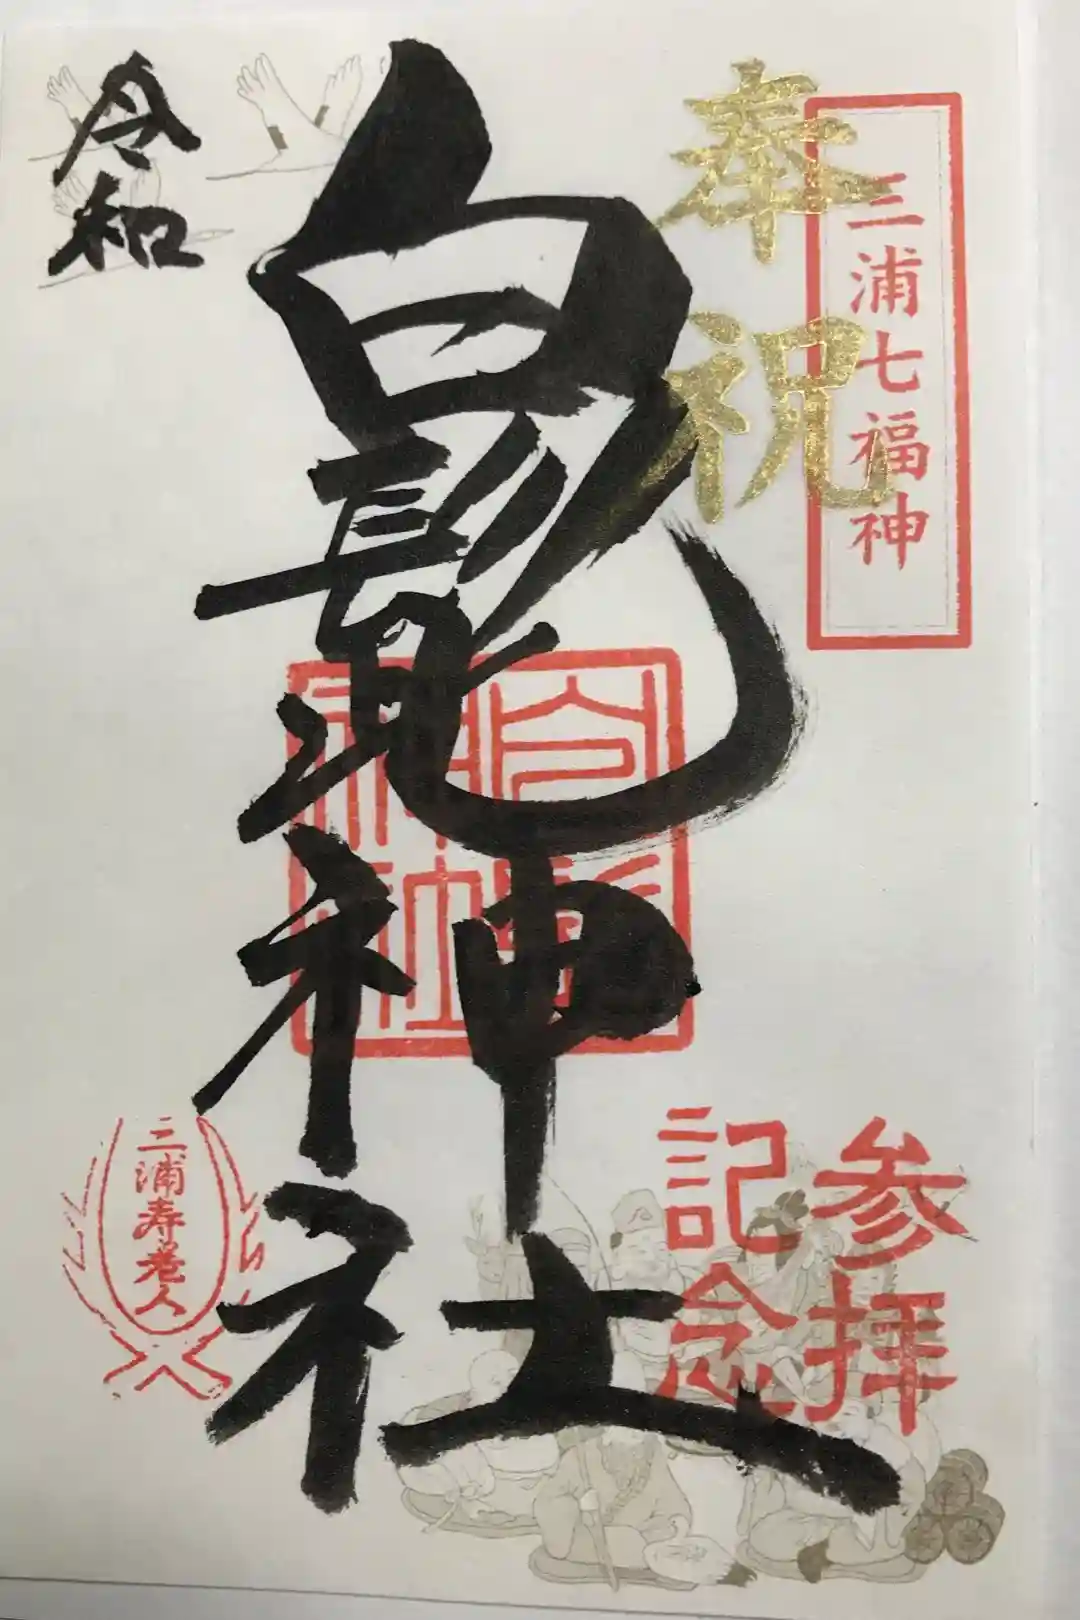 三浦七福神
奉祝
参拝
記念
白髭神社
白髭
神社
令和
三浦寿老人